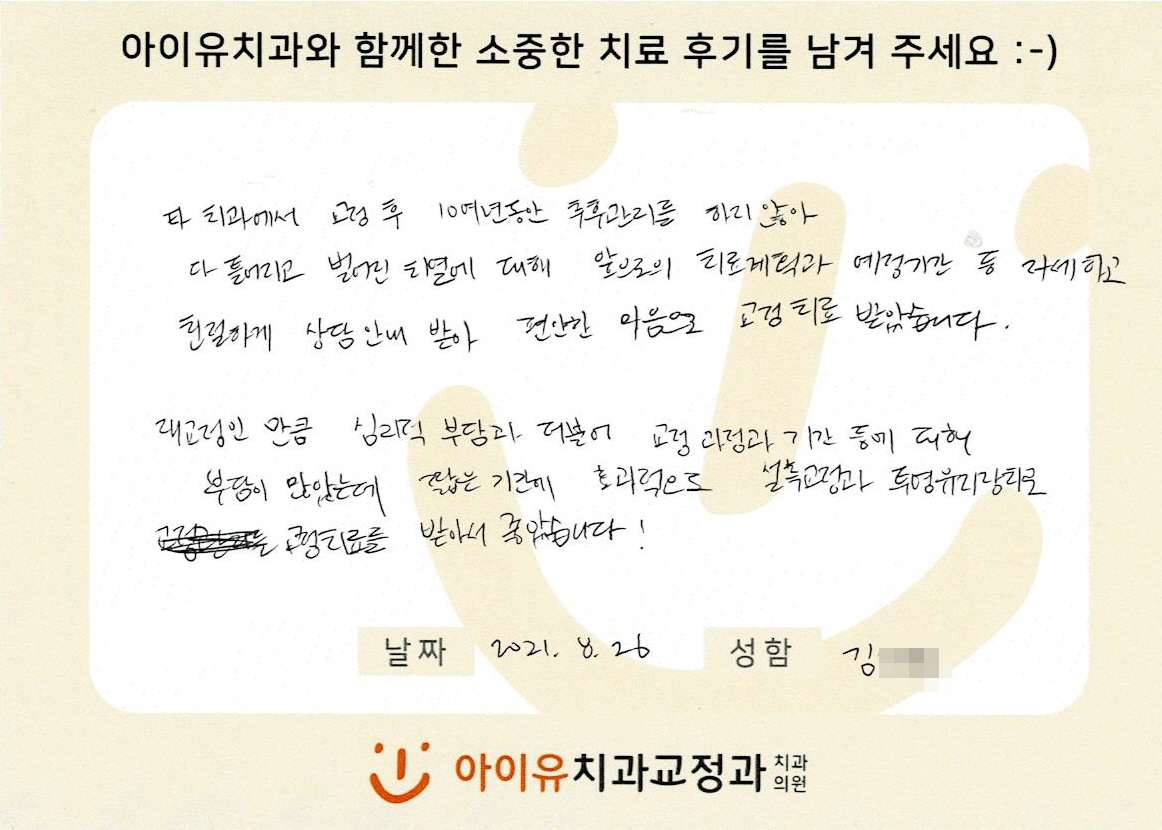 아이유치과와 함께한 소중한 치료 후기를 남겨 주세요 :-)
타 치과에서 교정 후 10여년동안 추후관리를 하지 않아
다 틀어지고 벌어진 치열에 대해 앞으로의 치료계획과 예정기간 등 자세하고
친절하게 상담 안내 받아 편안한 마음으로 교정 치료 받았습니다.
재교정인 만큼 심리적 부담과 더불어 교정 과정과 기간 등에 대해
부담이 많았는데 짧은 기간에 효과적으로 설측교정과 투명유지장치로
교정치료를 받아서 좋았습니다!
날짜 2021. 8. 26 성함 김
아이유치과교정과 치과
의원